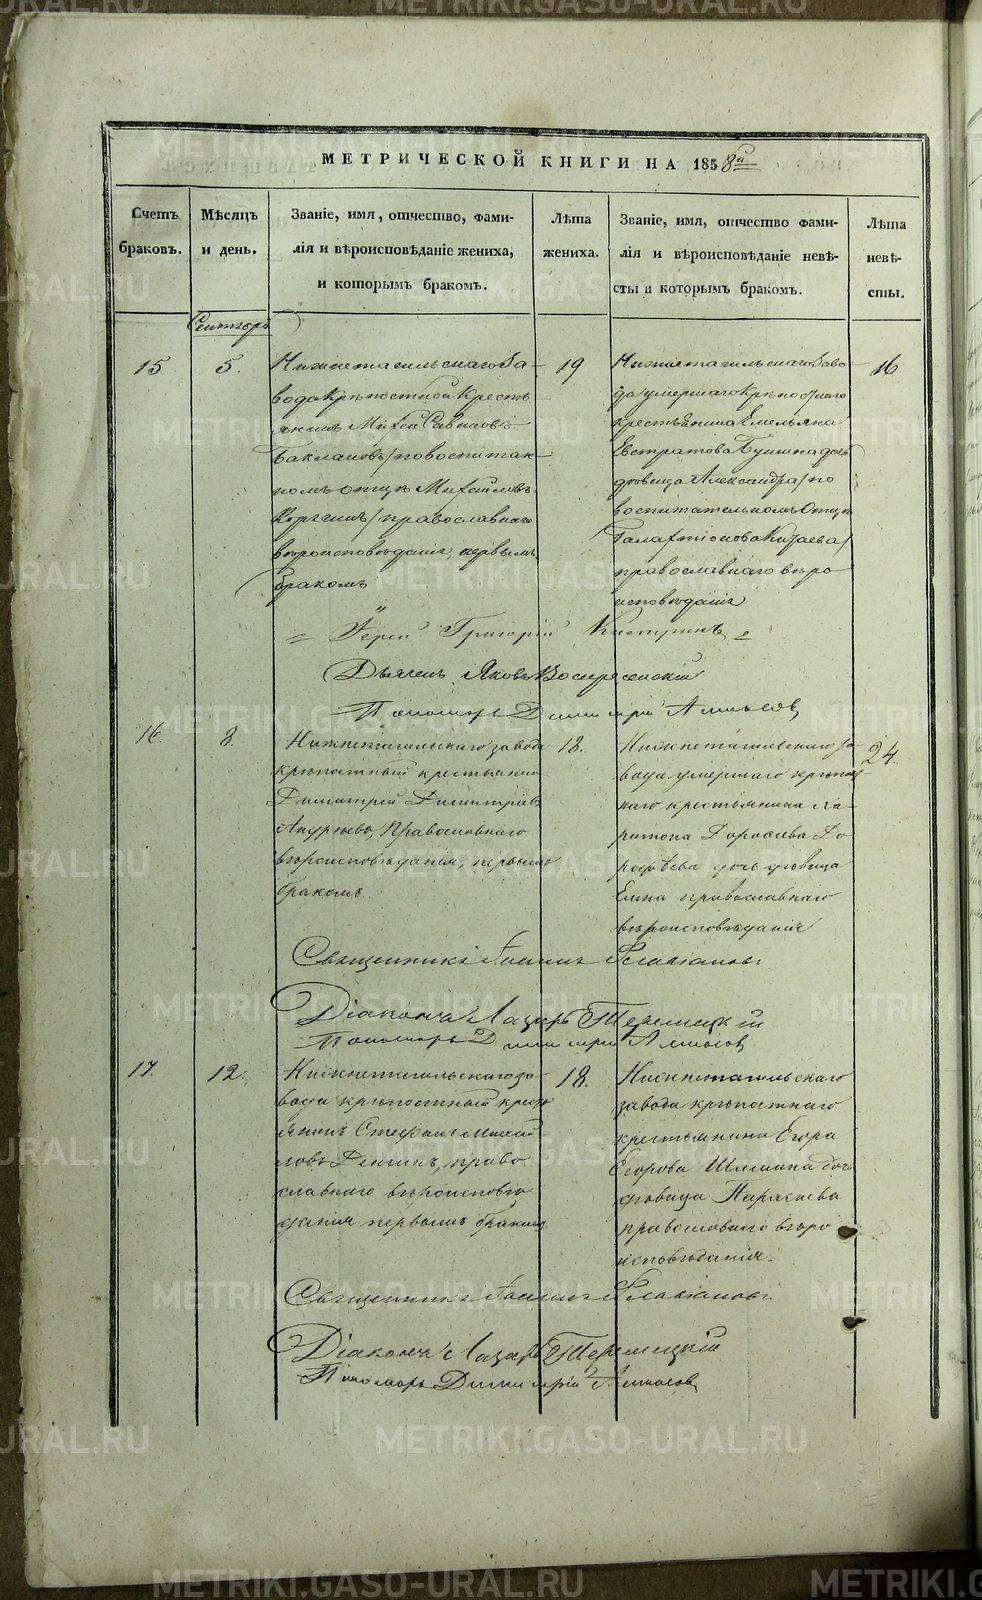 МЕТРИЧЕСКОЙ КНИГИ НА 1858й
Счетъ браковъ.
Мѣсяцъ и день.
Званіе, имя, отчество, фами-
лія и вѣроисповѣданіе жениха,
и которымъ бракомъ.
Лѣта жениха.
Званіе, имя, отчество фами-
лія и вѣроисповѣданіе невѣ-
сты и которымъ бракомъ.
Лѣта невѣ-
сты.
Сентябрь
15
5.
Нижнетагильскаго За-
вода Крѣпостной Кресть
янинъ Савиновъ
Баклановъ /по воспитан-
номъ отцѣ Михайловъ
/ православнаго
вѣроисповѣданія, первымъ
бракомъ
19
Нижнетагильскаго Заво-
да умершаго Крѣпостнаго
крестьянина Емельяна
Евстратова дочь
дѣвица Александра /по
воспитательномъ Отцѣ
Галактіонова /
православнаго вѣро
исповѣданія
16
Іерей Григорій
Дьячекъ Яковъ Воскресенскій
Пономарь Димитрій
16.
8.
Нижнетагильскаго завода
крѣпостный крестьянинъ
Димитрій Димитріевъ
Андреевъ, Православнаго
вѣроисповѣданія, первымъ
бракомъ.
18.
Нижнетагильскаго за-
вода умершаго крѣпост-
наго крестьянина Ха-
ритона Дорофѣева До
рофѣева дочь дѣвица
Елена православнаго
вѣроисповѣданія
24
Священникъ Іоаннъ Флавіановъ
Діаконъ Лазарь
Пономарь Димитрій
17.
12.
Нижнетагильскаго за-
вода крѣпостный кресть
янинъ Стефанъ Михай
ловъ право-
славнаго вѣроисповѣ
данія первымъ бракомъ.
18.
Нижнетагильскаго
завода крѣпостнаго
крестьянина Егора
Егорова дочь
дѣвица Параскева
православнаго вѣро
исповѣданія.
Священникъ Іоаннъ Флавіановъ
Діаконъ Лазарь
Пономарь Димитрій
METRIKI.GASO-URAL.RU